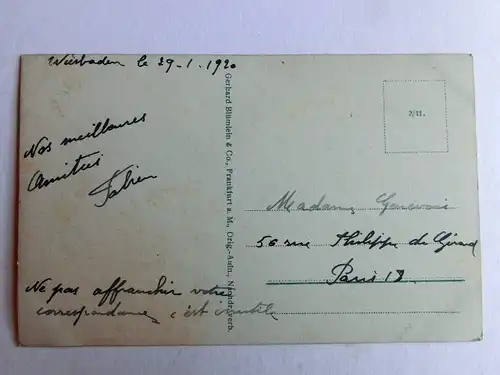 Wiesbaden le 29-1-1920
Nos meilleures
Amitiés
Fabien
Ne pas affranchir votre
correspondance, c'est inutile
Gerhard Blümlein & Co., Frankfurt a. M., Orig.-Aufn., Nachdr. verb.
2/11.
Madame Genevoix
56 rue Philippe de Girard
Paris 18